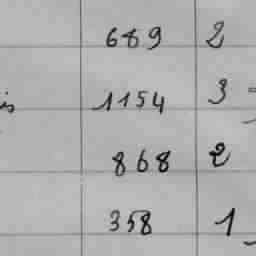 689 2
1154 3
868 2
358 1